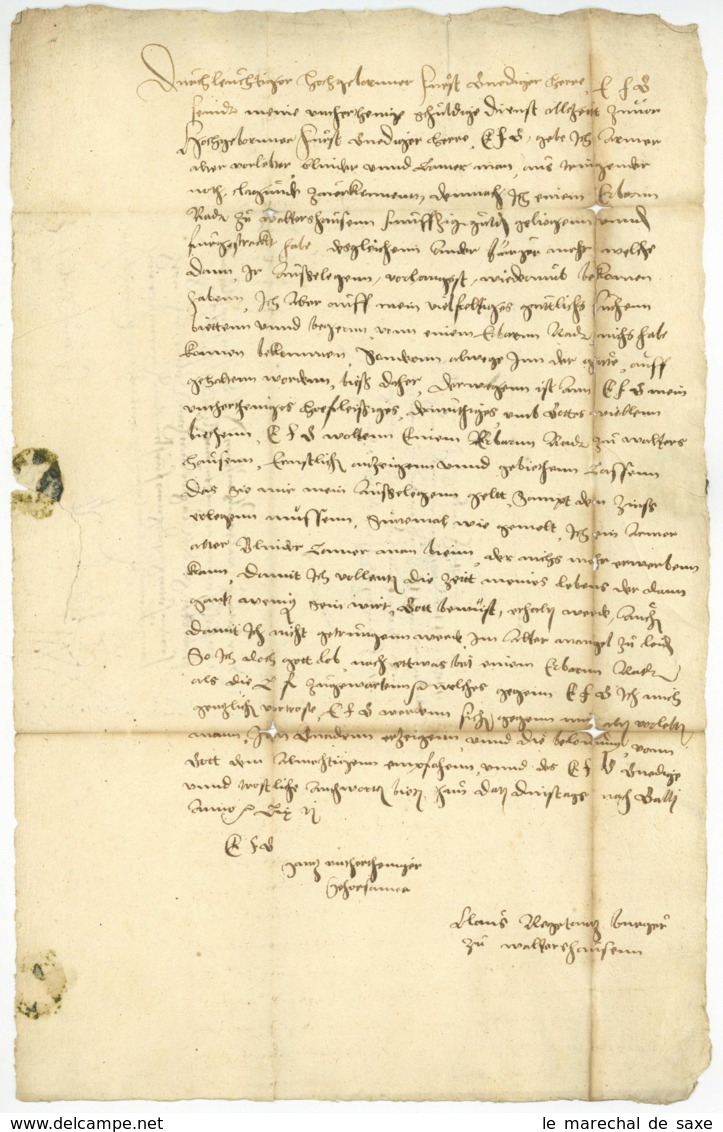 Durchleuchtiger Hochgeborner Furst Gnediger Herre, E F G
seindt meine untherthenige schuldige dienst alltzeit zuvor
Hochgeborner Furst Gnediger Herre, E F G, gebe Ich Armer
alter vorlebter blinder unnd Lamer man, aus dringender
noth, clagende zuerkennenn, demnach Ich einem Erbarnn
Radt zu Waltershausenn funffzig guldenn geliegenn unnd
furgestrackt habe, desgleichenn ander burger mehr welche
dann, Ir Außgelegenn, vorlangest, wiederumb bekomen
habenn, Ich Aber auff mein vielfeltiges guttlichs suchenn
biettenn unnd begerenn, vonn einem Erbarnn Radt, nichs habe
konnen bekommenn, Sondernn alwege Inn der guthe, auff
gehaltenn wordenn, bieß daher, Derwegenn ist ann E F G mein
unthertheniges hochfleißiges, demuthiges, umb Gottes willenn
biethenn, E F G woltenn Einem Erbarnn Radt zu Walters
hausenn, Ernstlich anzeigenn unnd gebiethenn Lassenn
Das Sie mir mein Außgelegenn geltt, Sampt den Zinß
erlegenn mussenn, Sintemal wie gemelt, Ich ein Armer
alter Blinder Lamer man binn, der nichs mehr erwerbenn
kann, damit Ich vollent die zeitt meines lebens der dann
gantz wenig sein wirt, Gott bewust, erhaltenn werde, Auch
damit Ich nicht getrungenn werde, Im Alter mangel zu leiden
So Ich doch gott lob, noch ettwas bei einem Erbarnn Radt
als die L fl zugewartenn welches gegenn E F G Ich mich
gentzlich vortroste, E F G werdenn sich gegenn mir alten vorlebten
mann, Inn Gnadenn erzeigenn, unnd die belonung, vonn
Gott dem Almechtigenn empfahenn, unnd des E F G Gnedige
unnd trostliche Anthwortt bieten, Datum dinstags nach Galli
Anno
E F G
gantz untherthenniger
Gehorsamer
Clauß burger
zu Waltershausenn
le marechal de saxe